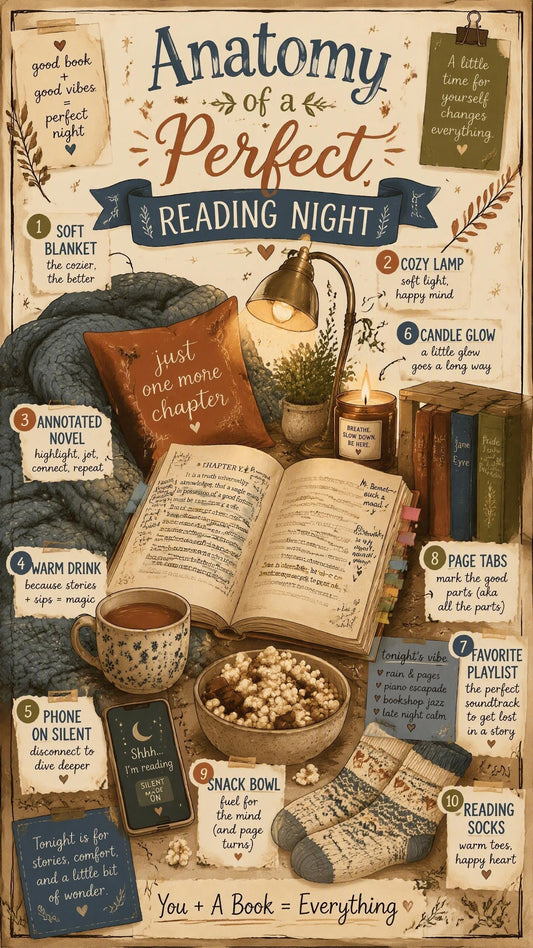 good book
+
good vibes.
=
perfect
night
Anatomy
of a
Perfect
READING NIGHT
A little
time for
yourself
changes
everything.
1 SOFT
BLANKET
the cozier,
the better
2 COZY LAMP
soft light,
happy mind
6 CANDLE GLOW
a little glow
goes a long way
just
one more
chapter
BREATHE.
SLOW DOWN.
BE HERE.
3 ANNOTATED
NOVEL
highlight, jot,
connect, repeat
CHAPTER
It is a truth
acknowledged, that a single
in possession of a good
must be
Mr. Bennet
such a
mood
Jane
Eyre
Pride
4 WARM DRINK
because stories
+ sips = magic
8 PAGE TABS
mark the good
parts (aka
all the parts)
tonight's vibe
rain & pages
piano escapade
bookshop jazz
late night calm
7 FAVORITE
PLAYLIST
the perfect
soundtrack
to get lost
in a story
5 PHONE
ON SILENT
disconnect to
dive deeper
Shhh...
I'm reading
SILENT
ON
9 SNACK BOWL
fuel for
the mind
(and page
turns)
10 READING
SOCKS
warm toes,
happy heart
Tonight is for
stories, comfort,
and a little bit
of wonder.
You + A Book = Everything